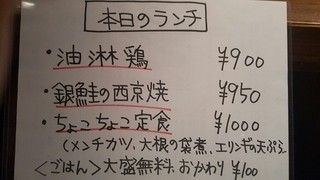 本日のランチ
・油淋鶏 ¥900
・銀鮭の西京焼 ¥950
・ちょこちょこ定食 ¥1000
(メンチカツ、大根の袋煮、エリンギの天ぷら
<ごはん>大盛無料、おかわり¥100